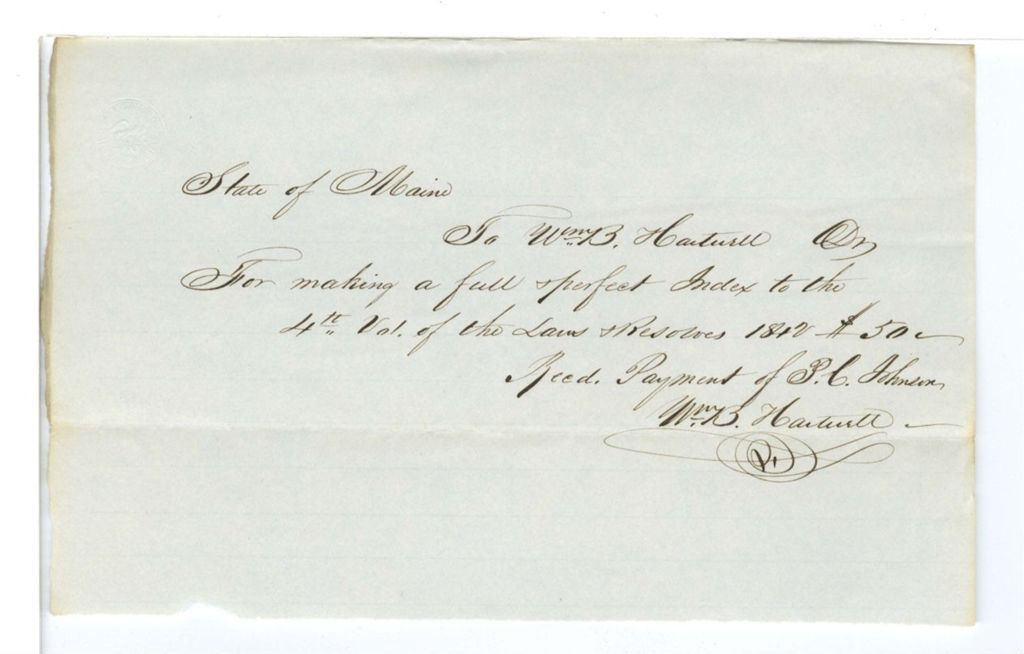 State of Maine
To Wm B. Hartwell Dr
For making a full & perfect Index to the
4th Vol. of the Laws & Resolves 1842 $50
Recd. Payment of P. C. Johnson
Wm B. Hartwell